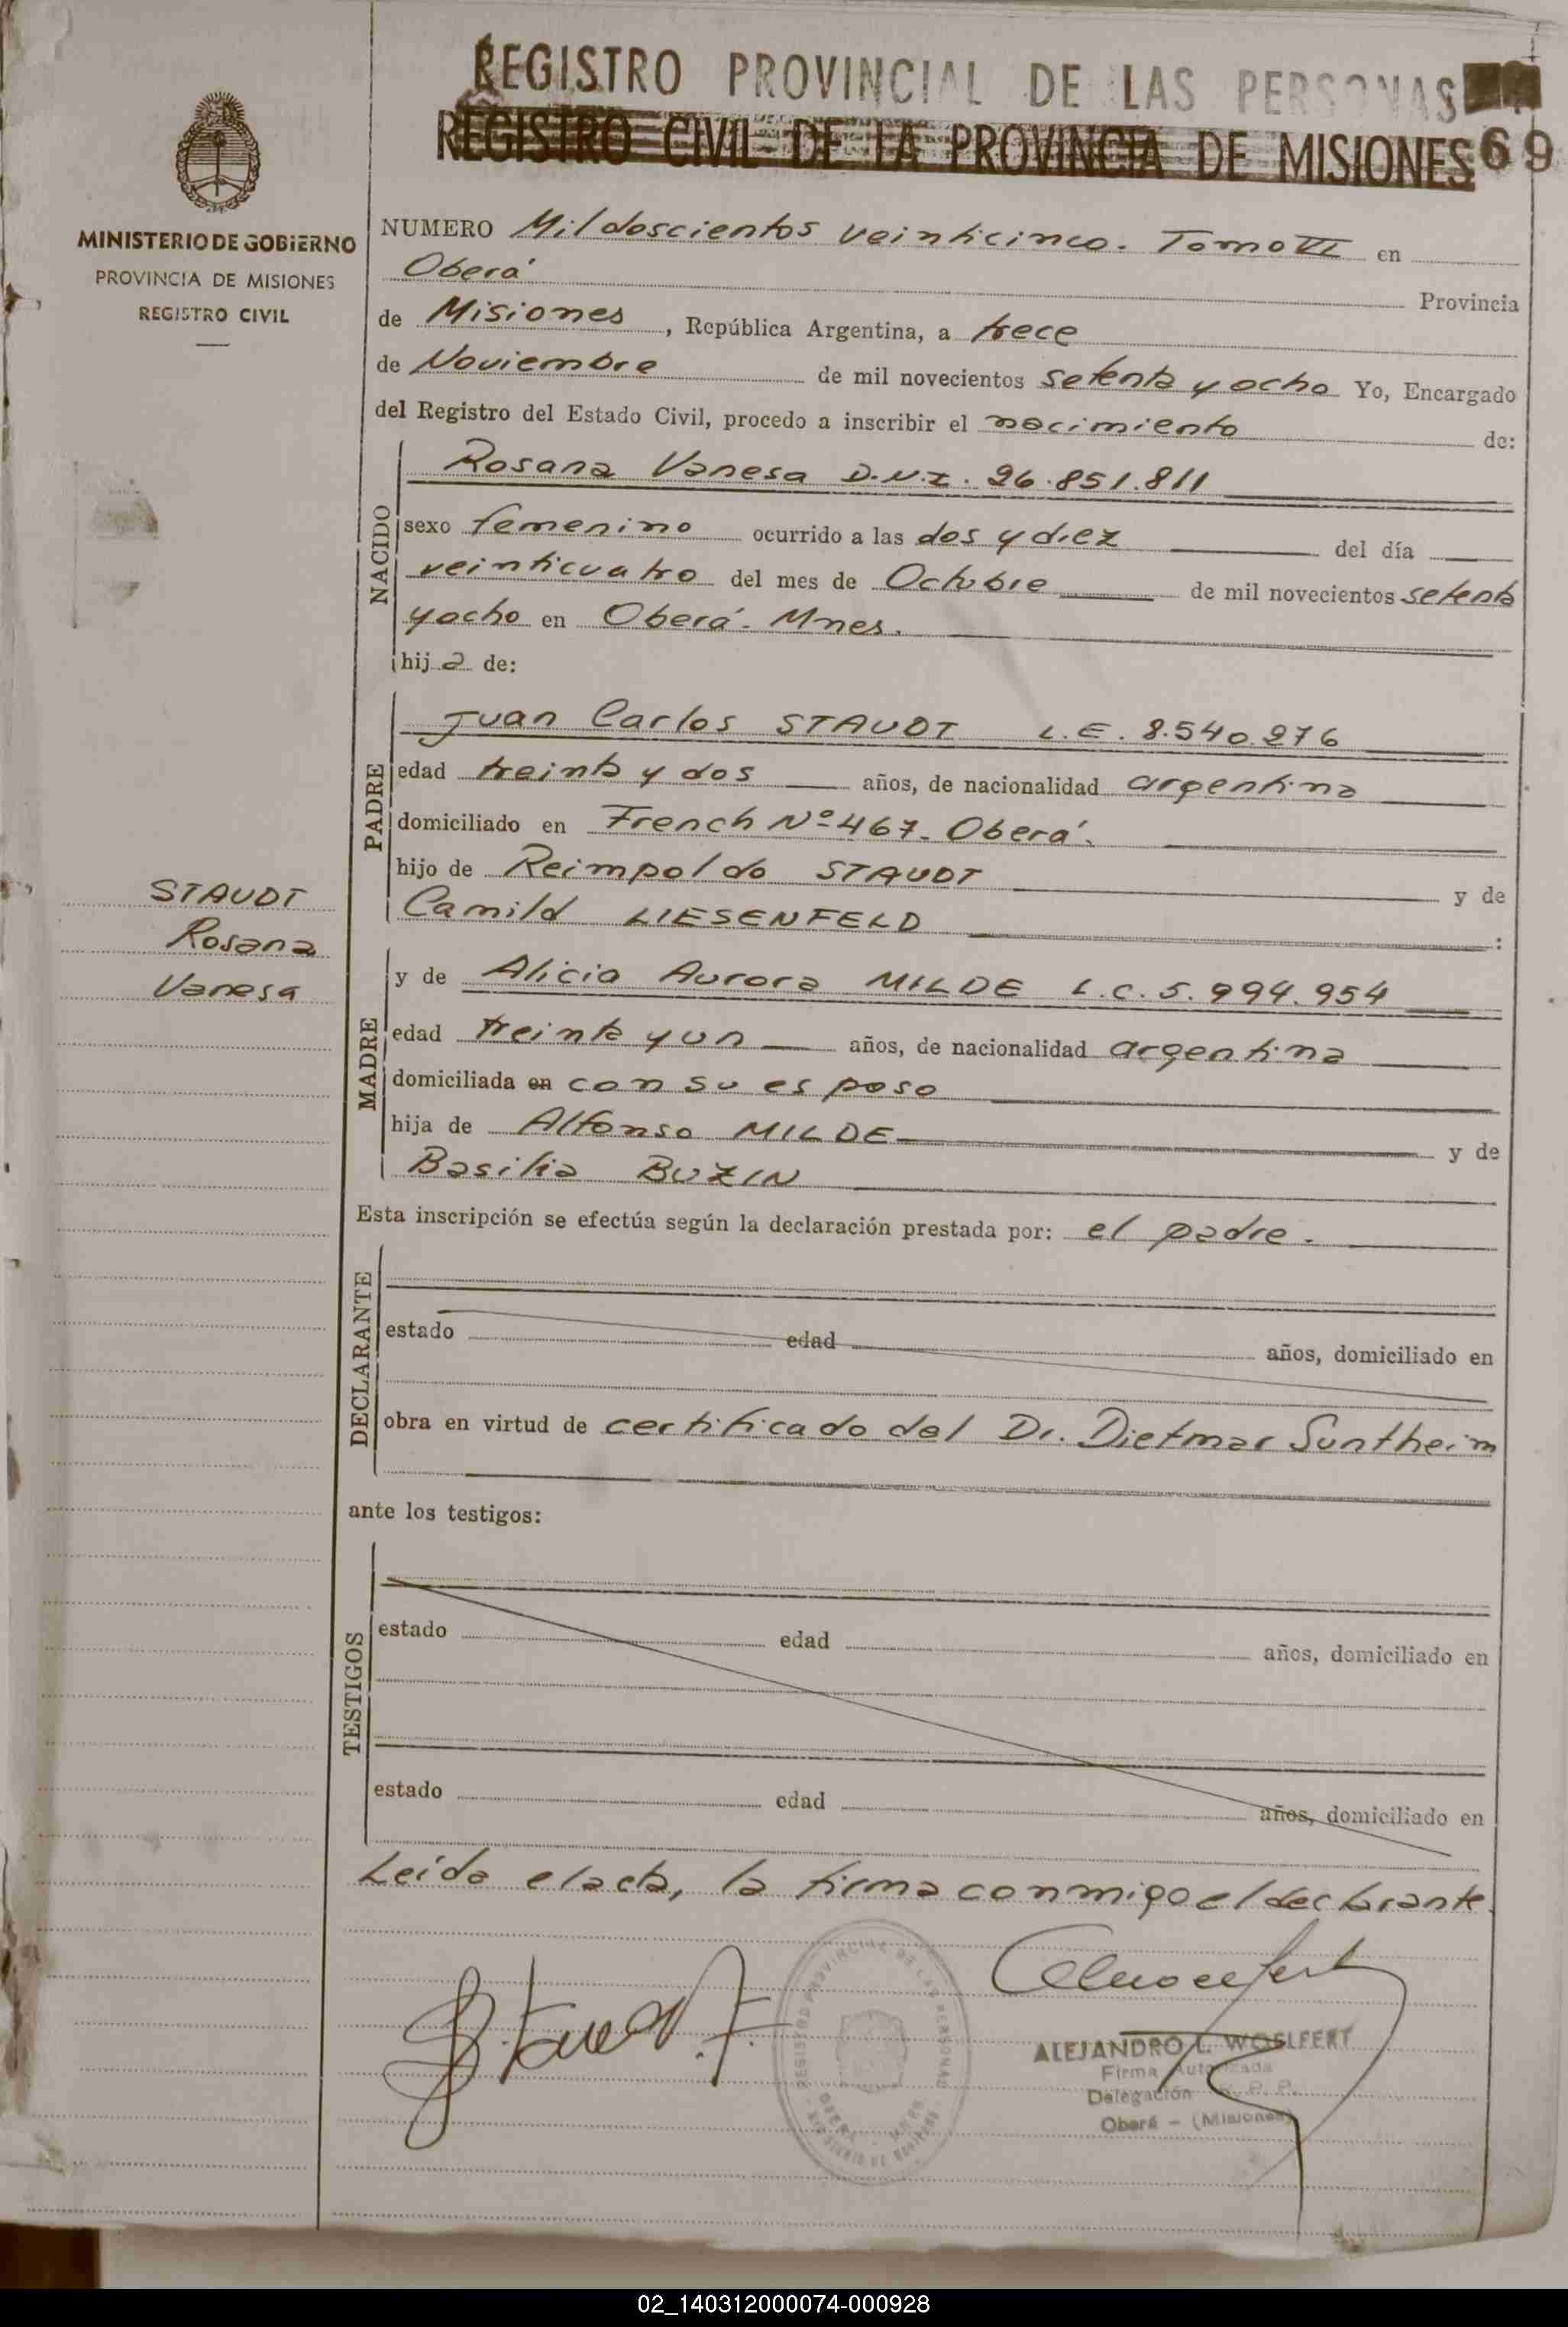 REGISTRO PROVINCIAL DE LAS PERSONAS
REGISTRO CIVIL DE LA PROVINCIA DE MISIONES 69
MINISTERIO DE GOBIERNO
PROVINCIA DE MISIONES
REGISTRO CIVIL
NUMERO Mil doscientos veinticinco. Tomo VI en
Oberá Provincia
de Misiones, República Argentina, a trece
de Noviembre de mil novecientos setenta y ocho Yo, Encargado
del Registro del Estado Civil, procedo a inscribir el nacimiento de:
NACIDO
Rosana Vanesa D.N.I. 26.851.811
sexo femenino ocurrido a las dos y diez del día
veinticuatro del mes de Octubre de mil novecientos setenta
y ocho en Oberá. Mnes.
hija de:
PADRE
Juan Carlos STAUDT L.E. 8.540.276
edad treinta y dos años, de nacionalidad argentina
domiciliado en French Nº 467. Oberá.
hijo de Reimpoldo STAUDT y de
Camild LIESENFELD :
STAUDT
Rosana
Vanesa
MADRE
y de Alicia Aurora MILDE L.C. 5.994.954
edad treinta y un años, de nacionalidad argentina
domiciliada en con su esposo
hija de Alfonso MILDE y de
Basilia BUZIN
Esta inscripción se efectúa según la declaración prestada por: el padre.
DECLARANTE
estado edad años, domiciliado en
obra en virtud de certificado del Dr. Dietmar Suntheim
ante los testigos:
TESTIGOS
estado edad años, domiciliado en
estado edad años, domiciliado en
Leída el acta, la firma conmigo el declarante.
REGISTRO PROVINCIAL DE LAS PERSONAS
ALEJANDRO L. WOELFERT
Firma Autorizada
Delegación R. P. P.
Oberá - (Misiones)
02_140312000074-000928